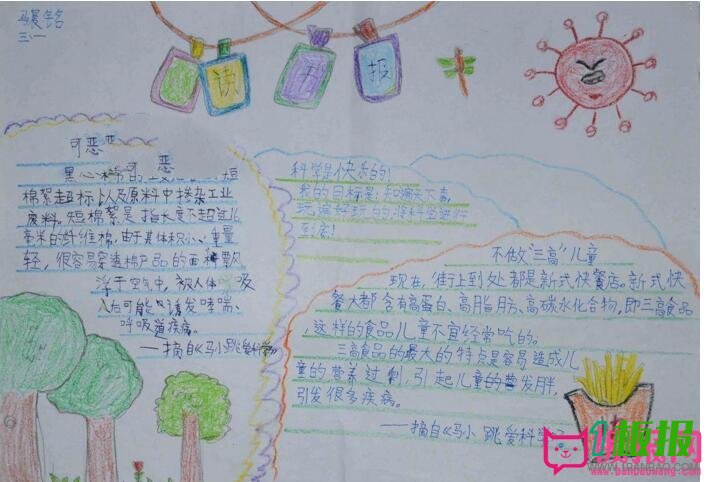 铭
三.一
读
手
报
可恶
可 恶
黑心棉 短
棉絮超标以及原料中掺杂工业
废料。短棉絮是指长度不超过16
毫米的纤维棉,由于其体积小、重量
轻,很容易穿透棉产品的面料飘
浮于空气中,被人体呼吸
入后可能诱发哮喘、
呼吸道疾病。
——摘自《马小跳爱科学》
科学是快乐的!
我的目标是:知
玩 的 科学进行
到底!
不做“三高”儿童
现在,街上到处都是新式快餐店。新式快
餐大都含有高蛋白、高脂肪、高碳水化合物,即三高食品
,这样的食品儿童不宜经常吃的。
三高食品的最大的特点是容易造成儿
童的营养过剩,引起儿童的发胖,
引发很多疾病。
——摘自《马小跳爱科学》
板报
WWW.1BANBAO.COM
www.banbaowang.com